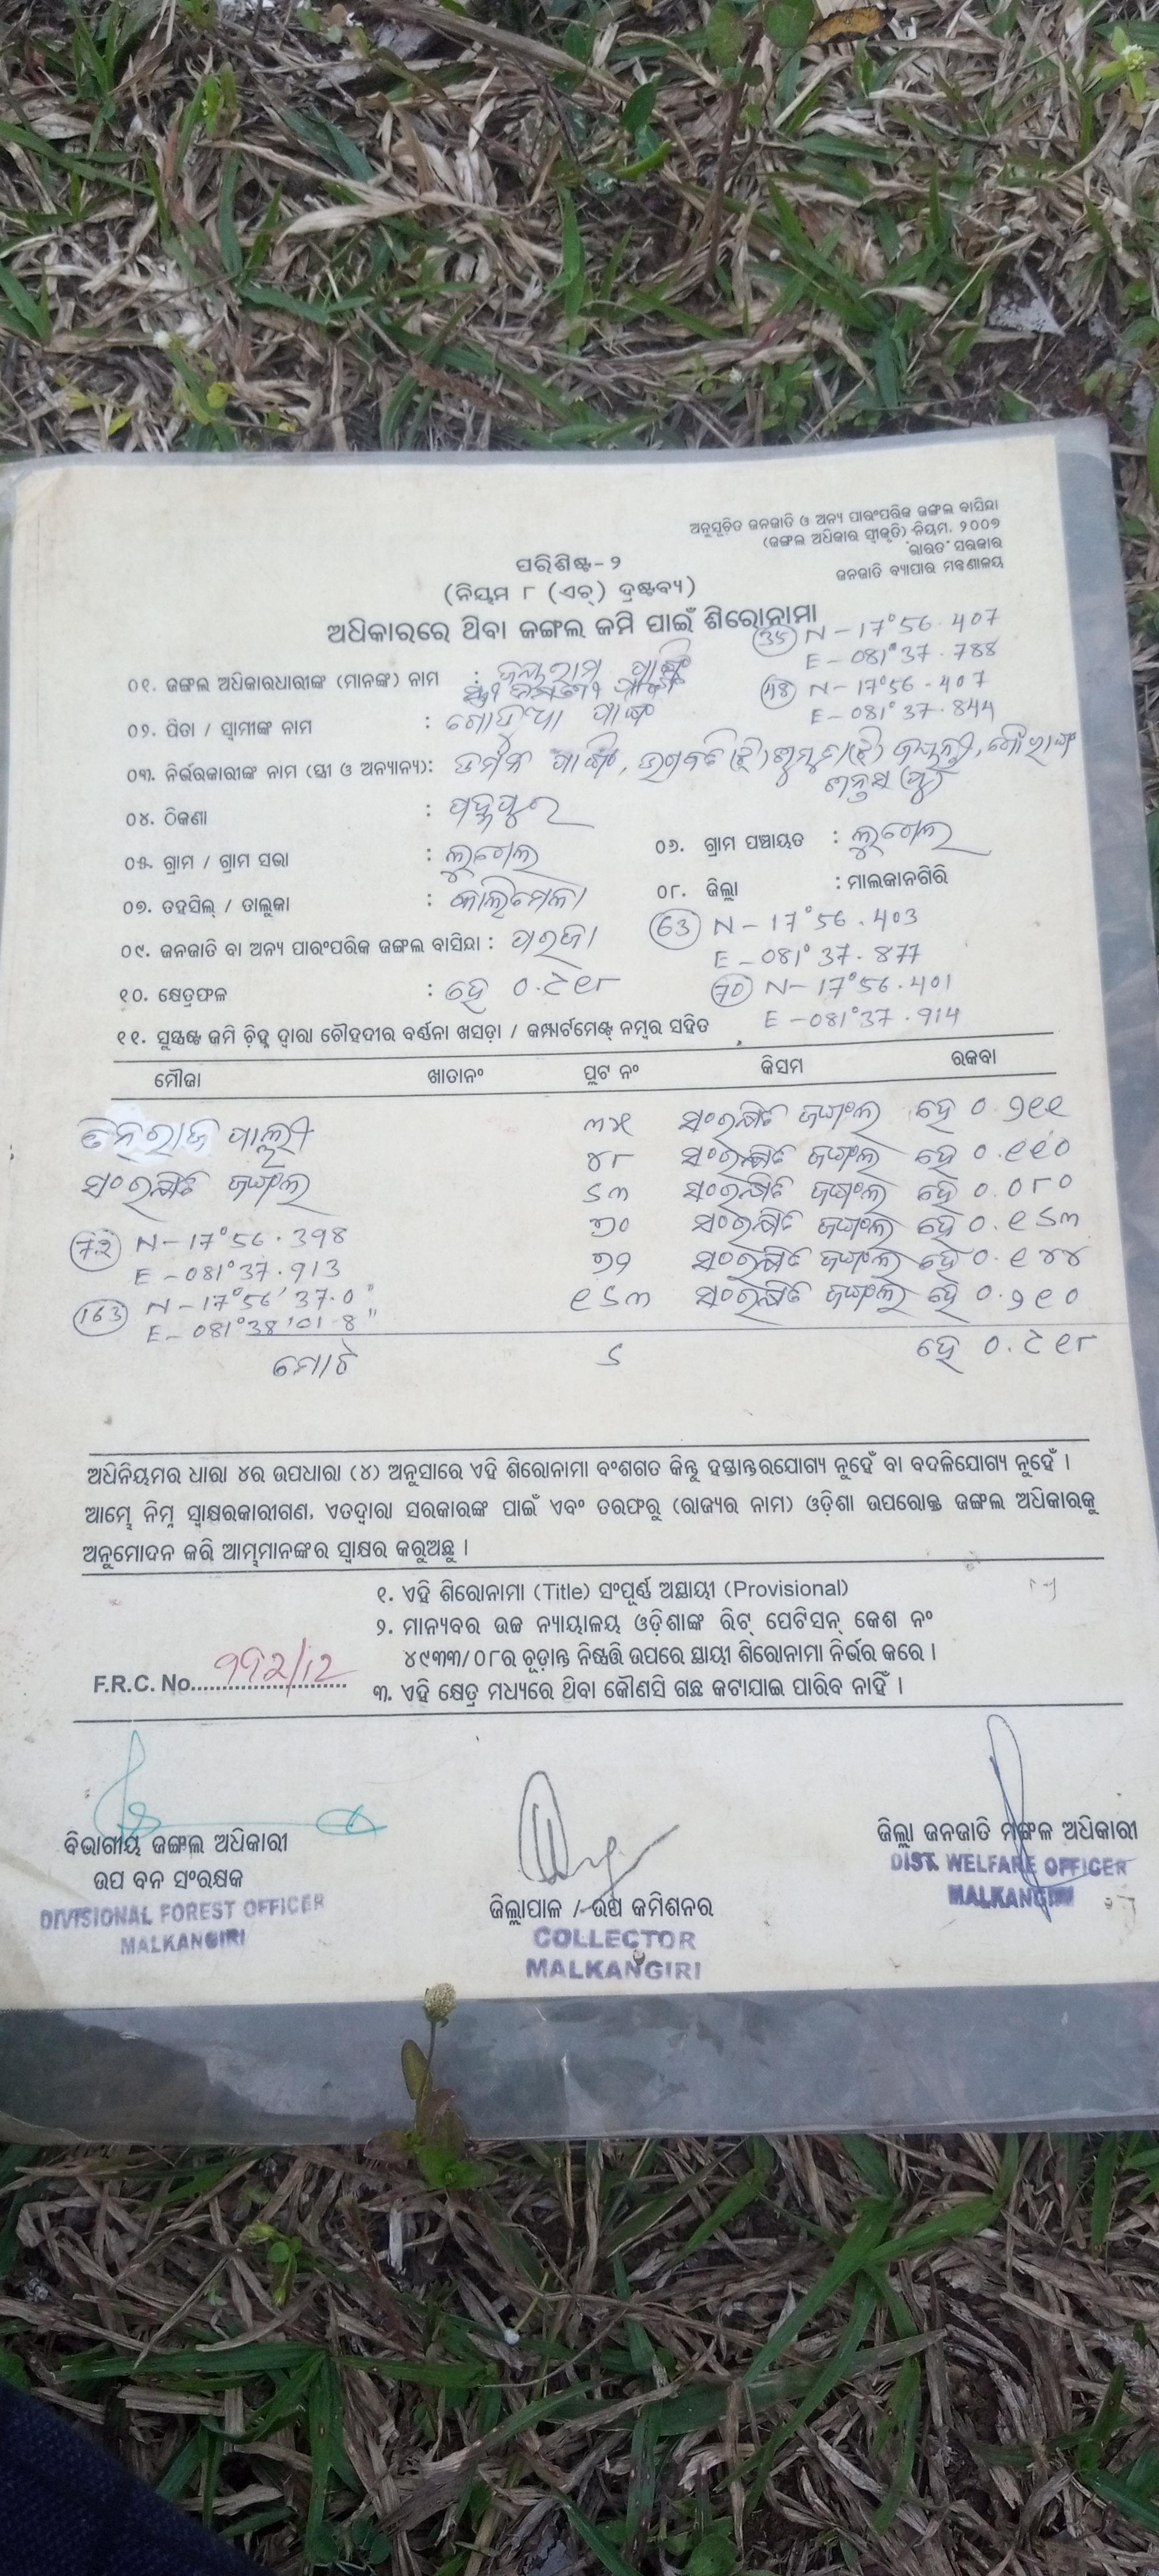 ଅନୁସୂଚିତ ଜନଜାତି ଓ ଅନ୍ୟ ପାରଂପରିକ ଜଙ୍ଗଲ ବାସିନ୍ଦା
(ଜଙ୍ଗଲ ଅଧିକାର ସ୍ୱୀକୃତି) ନିୟମ, ୨୦୦୭
ଭାରତ ସରକାର
ଜନଜାତି ବ୍ୟାପାର ମନ୍ତ୍ରଣାଳୟ
ପରିଶିଷ୍ଟ-୨
(ନିୟମ ୮ (ଏଚ୍) ଦ୍ରଷ୍ଟବ୍ୟ)
ଅଧିକାରରେ ଥିବା ଜଙ୍ଗଲ ଜମି ପାଇଁ ଶିରୋନାମା
(35) N - 17°56.407
E - 081°37.788
(48) N - 17°56.407
E - 081°37.844
୦୧. ଜଙ୍ଗଲ ଅଧିକାରଧାରୀଙ୍କ (ମାନଙ୍କ) ନାମ :
୦୨. ପିତା / ସ୍ୱାମୀଙ୍କ ନାମ :
୦୩. ନିର୍ଭରକାରୀଙ୍କ ନାମ (ସ୍ତ୍ରୀ ଓ ଅନ୍ୟାନ୍ୟ) :
୦୪. ଠିକଣା :
୦୫. ଗ୍ରାମ / ଗ୍ରାମ ସଭା :
୦୬. ଗ୍ରାମ ପଞ୍ଚାୟତ :
୦୭. ତହସିଲ୍ / ତାଲୁକା : କାଲିମେଳା
୦୮. ଜିଲ୍ଲା : ମାଲକାନଗିରି
୦୯. ଜନଜାତି ବା ଅନ୍ୟ ପାରଂପରିକ ଜଙ୍ଗଲ ବାସିନ୍ଦା : ପରଜା
(63) N - 17°56.403
E - 081°37.877
୧୦. କ୍ଷେତ୍ରଫଳ : ହେ ୦.୯୧୮
(70) N - 17°56.401
E - 081°37.914
୧୧. ସୁସ୍ପଷ୍ଟ ଜମି ଚିହ୍ନ ଦ୍ୱାରା ଚୌହଦୀର ବର୍ଣ୍ଣନା ଖସଡ଼ା / କମ୍ପାର୍ଟମେଣ୍ଟ୍ ନମ୍ବର ସହିତ
ମୌଜା ଖାତାନଂ ପ୍ଲଟ ନଂ କିସମ ରକବା
୩୫ ସଂରକ୍ଷିତ ଜଙ୍ଗଲ ହେ ୦.୨୧୧
୪୮ ସଂରକ୍ଷିତ ଜଙ୍ଗଲ ହେ ୦.୧୧୦
ସଂରକ୍ଷିତ ଜଙ୍ଗଲ ୬୩ ସଂରକ୍ଷିତ ଜଙ୍ଗଲ ହେ ୦.୦୮୦
(72) N - 17°56.398 ୭୦ ସଂରକ୍ଷିତ ଜଙ୍ଗଲ ହେ ୦.୧୬୩
E - 081°37.913 ୭୨ ସଂରକ୍ଷିତ ଜଙ୍ଗଲ ହେ ୦.୧୪୪
(163) N - 17°56'37.0" ୧୬୩ ସଂରକ୍ଷିତ ଜଙ୍ଗଲ ହେ ୦.୨୧୦
E - 081°38'01.8"
ମୋଟ ୬ ହେ ୦.୯୧୮
ଅଧିନିୟମର ଧାରା ୪ର ଉପଧାରା (୪) ଅନୁସାରେ ଏହି ଶିରୋନାମା ବଂଶଗତ କିନ୍ତୁ ହସ୍ତାନ୍ତରଯୋଗ୍ୟ ନୁହେଁ ବା ବଦଳିଯୋଗ୍ୟ ନୁହେଁ ।
ଆମ୍ଭେ ନିମ୍ନ ସ୍ୱାକ୍ଷରକାରୀଗଣ, ଏତଦ୍ୱାରା ସରକାରଙ୍କ ପାଇଁ ଏବଂ ତରଫରୁ (ରାଜ୍ୟର ନାମ) ଓଡ଼ିଶା ଉପରୋକ୍ତ ଜଙ୍ଗଲ ଅଧିକାରକୁ
ଅନୁମୋଦନ କରି ଆମ୍ଭମାନଙ୍କର ସ୍ୱାକ୍ଷର କରୁଅଛୁ ।
୧. ଏହି ଶିରୋନାମା (Title) ସଂପୂର୍ଣ୍ଣ ଅସ୍ଥାୟୀ (Provisional)
୨. ମାନ୍ୟବର ଉଚ୍ଚ ନ୍ୟାୟାଳୟ ଓଡ଼ିଶାଙ୍କ ରିଟ୍ ପେଟିସନ୍ କେଶ ନଂ
୪୯୩୩/୦୮ର ଚୂଡ଼ାନ୍ତ ନିଷ୍ପତ୍ତି ଉପରେ ସ୍ଥାୟୀ ଶିରୋନାମା ନିର୍ଭର କରେ ।
F.R.C. No.
୩. ଏହି କ୍ଷେତ୍ର ମଧ୍ୟରେ ଥିବା କୌଣସି ଗଛ କଟାଯାଇ ପାରିବ ନାହିଁ ।
ବିଭାଗୀୟ ଜଙ୍ଗଲ ଅଧିକାରୀ
ଉପ ବନ ସଂରକ୍ଷକ
DIVISIONAL FOREST OFFICER
MALKANGIRI
ଜିଲ୍ଲାପାଳ / ଉପ କମିଶନର
COLLECTOR
MALKANGIRI
ଜିଲ୍ଲା ଜନଜାତି ମଙ୍ଗଳ ଅଧିକାରୀ
DIST. WELFARE OFFICER
MALKANGIRI